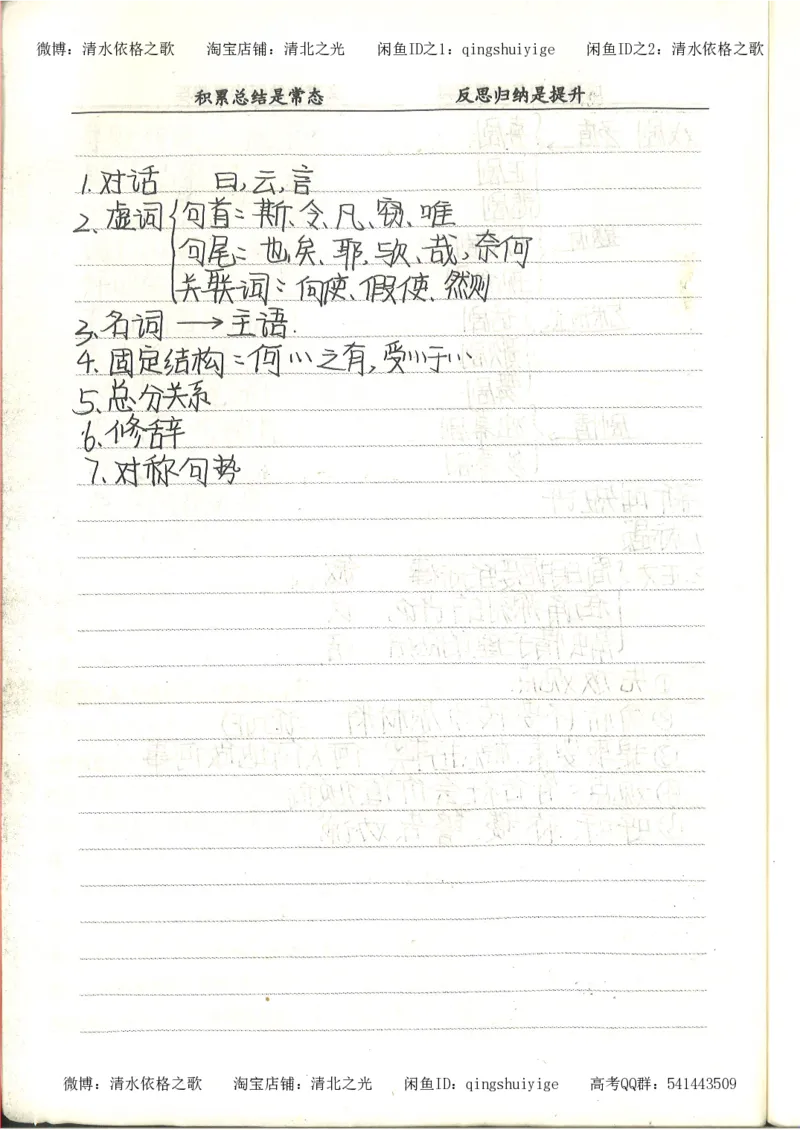 微博：清水依格之歌 淘宝店铺：清北之光 闲鱼ID之1：qingshuiyige 闲鱼ID之2：清水依格之歌
积累总结是常态 反思归纳是提升
1.对话 曰,云,言
2、虚词{句首：斯、令、凡、窃、唯
句尾：也、矣、耶、欤、哉,奈何
关联词：向使、假使、然则
3、名词→主语.
4.固定结构：何……之有,受……于……
5、总分关系
6、修辞
7、对称句势
微博：清水依格之歌 淘宝店铺：清北之光 闲鱼ID：qingshuiyige 高考QQ群：541443509